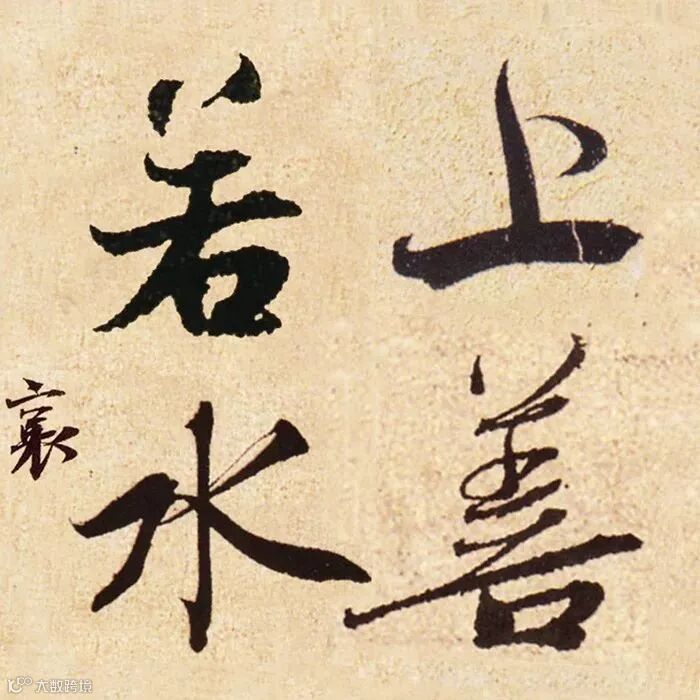 上善
若水
襄
大数跨境